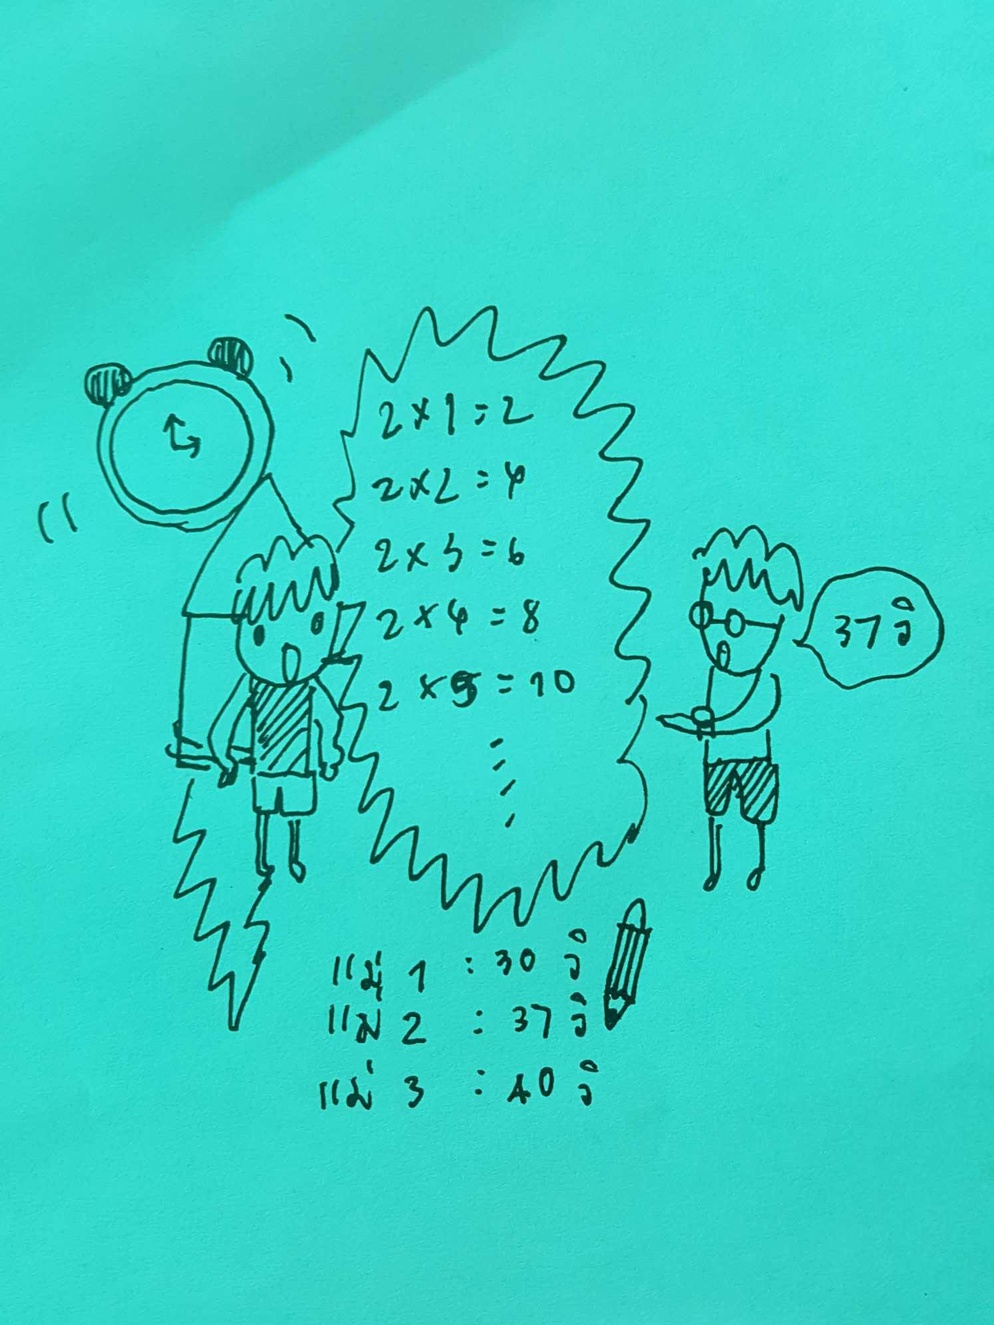 2×1=2
2×2=4
2×3=6
2×4=8
2×5=10
37 วิ
แม่ 1 : 30 วิ
แม่ 2 : 37 วิ
แม่ 3 : 40 วิ